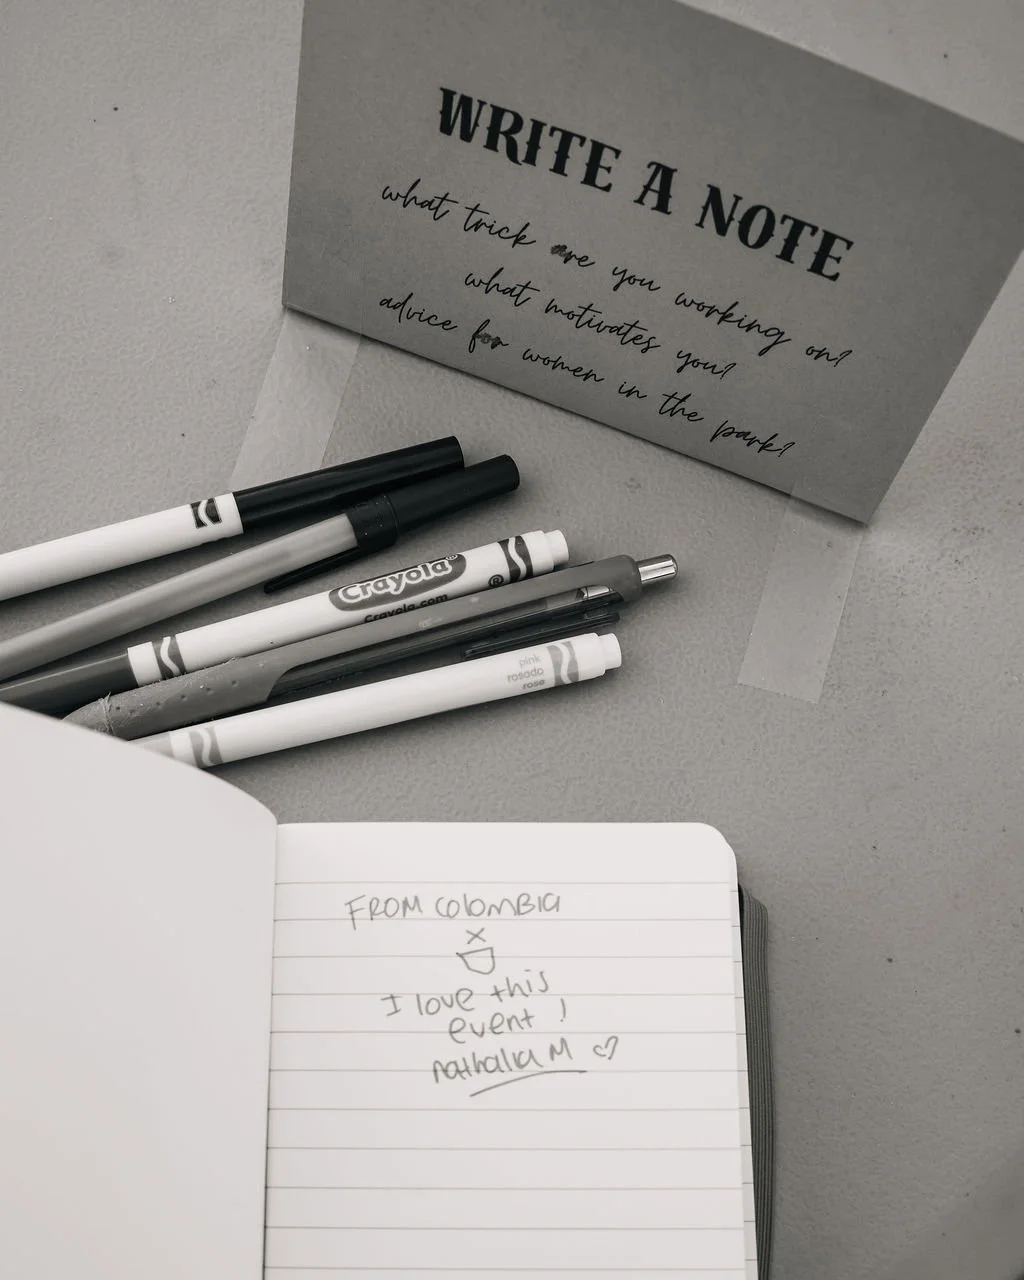 WRITE A NOTE
what trick are you working on?
what motivates you?
advice for women in the park?
Crayola®
Crayola.com
®
pink
rosado
rose
FROM COLOMBIA
x
I love this
event !
nathalia M